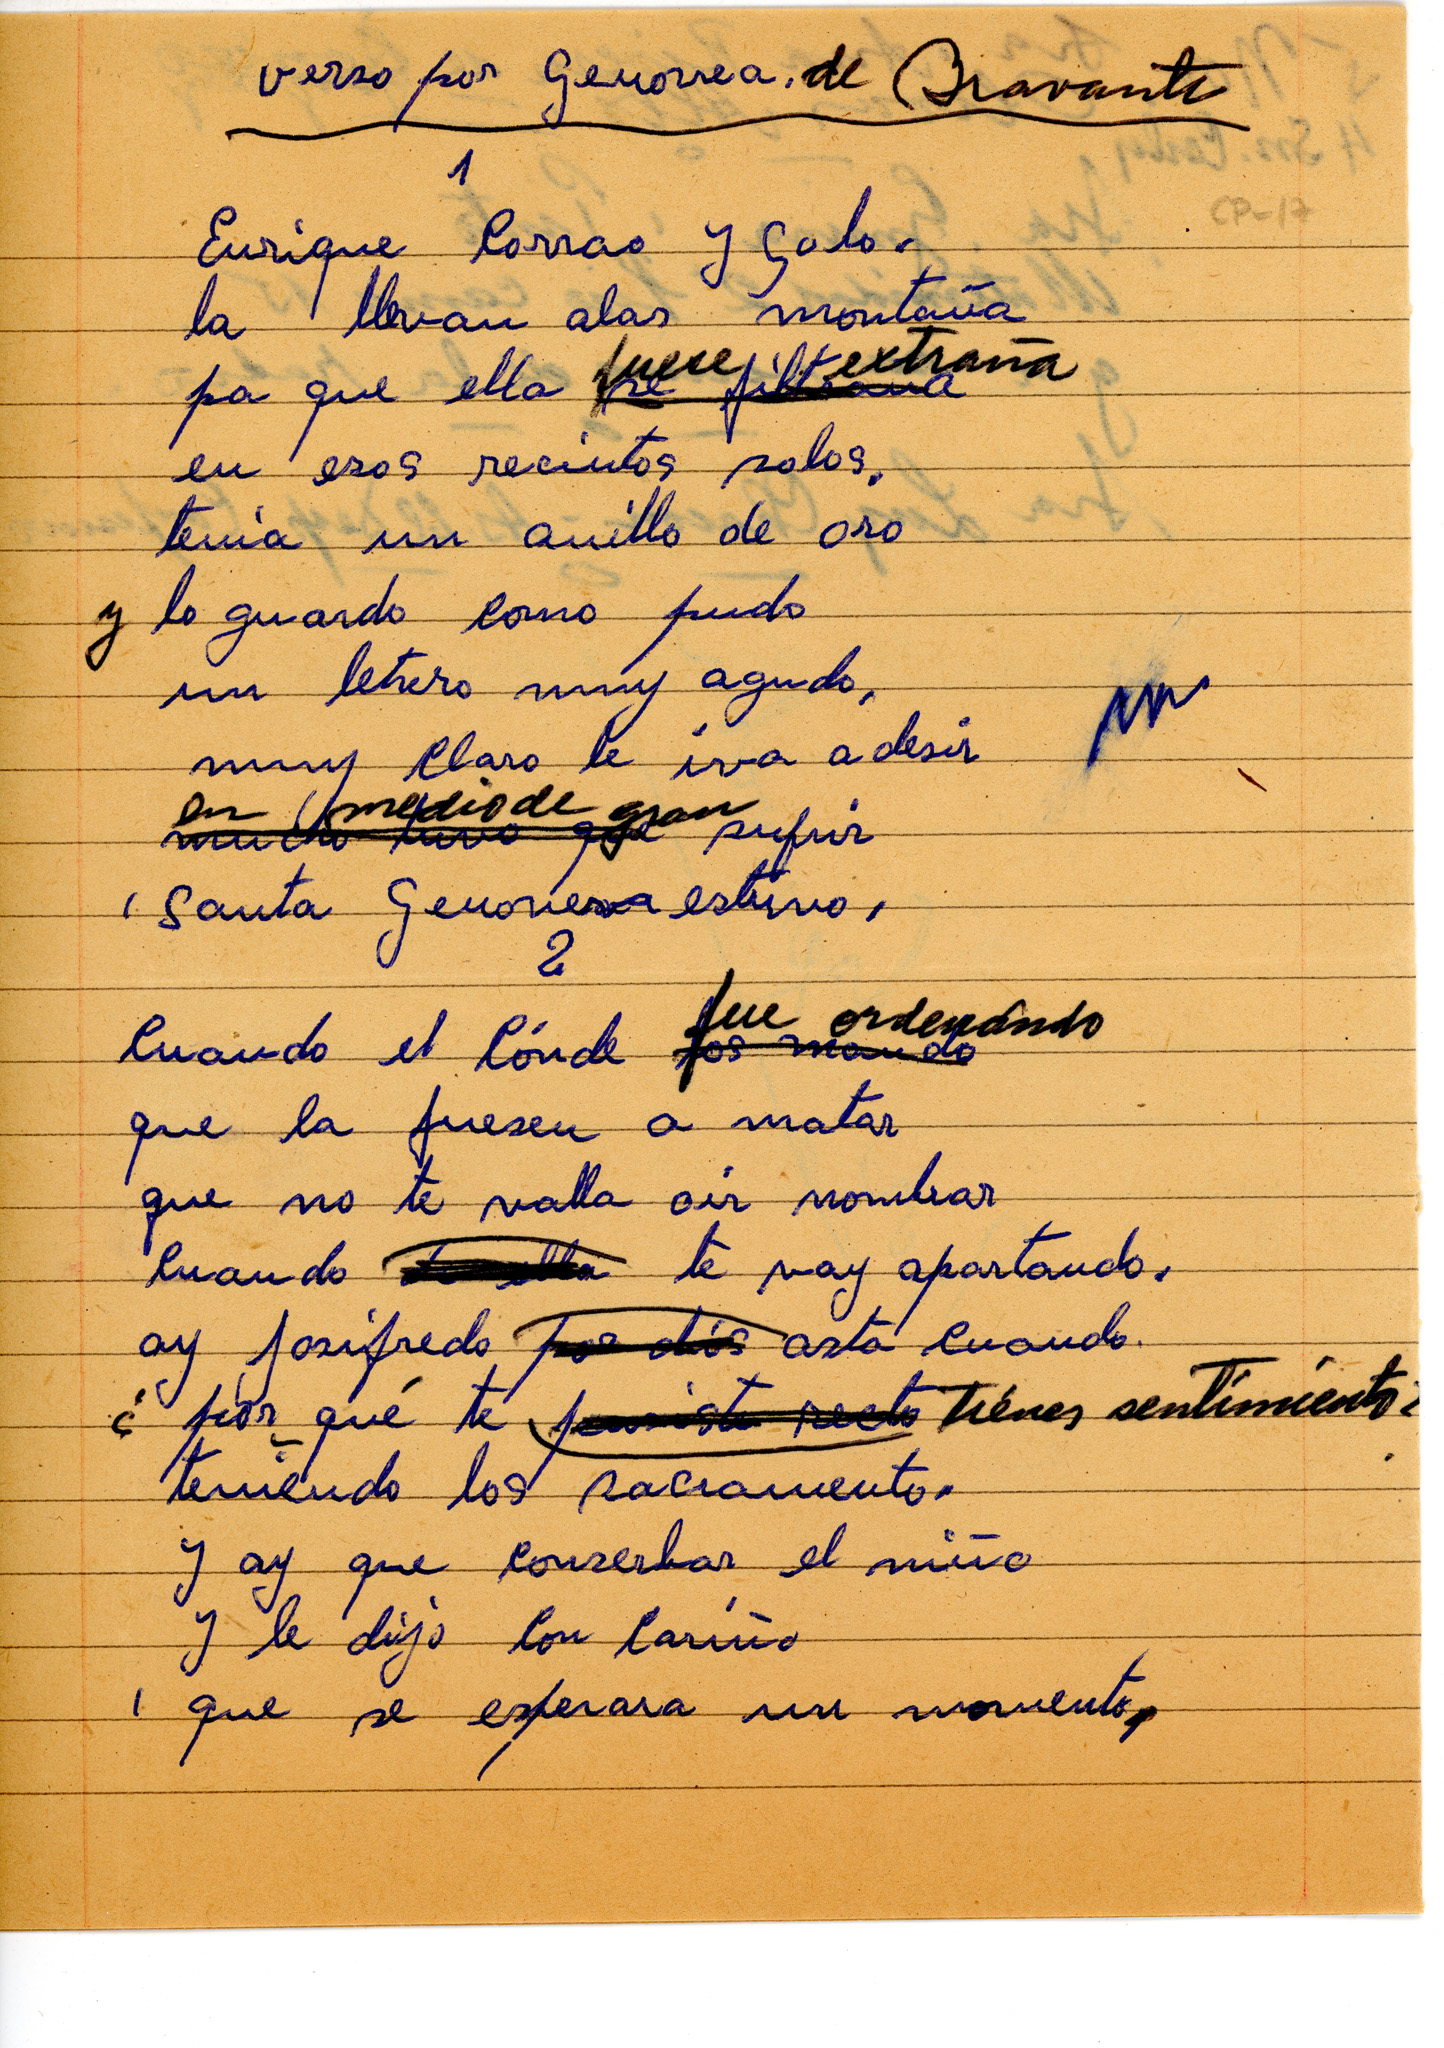 verso por Genovea. de Bravante
1
Enrique Corrao y Golo.
la llevan alas montaña
pa que ella fuese extraña
se filtrana
en esos recintos solos.
tenia un anillo de oro
y lo guardo como pudo
un letrero muy agudo,
muy claro le iva a desir
en medio de gran
mucho tuvo que sufrir
Santa Genoveva estuvo.
2
Cuando el Cónde fue ordenándo
los mando
que la fuesen a matar
que no te valla oir nombrar
Cuando te voy apartando.
ay josifredo por diós asta cuando.
¿ pór qué te tiénes sentimiénto?
teniendo los sacramento.
y ay que conserbar el niño
y le dijo con cariño
que se esperara un momento,
CP-17